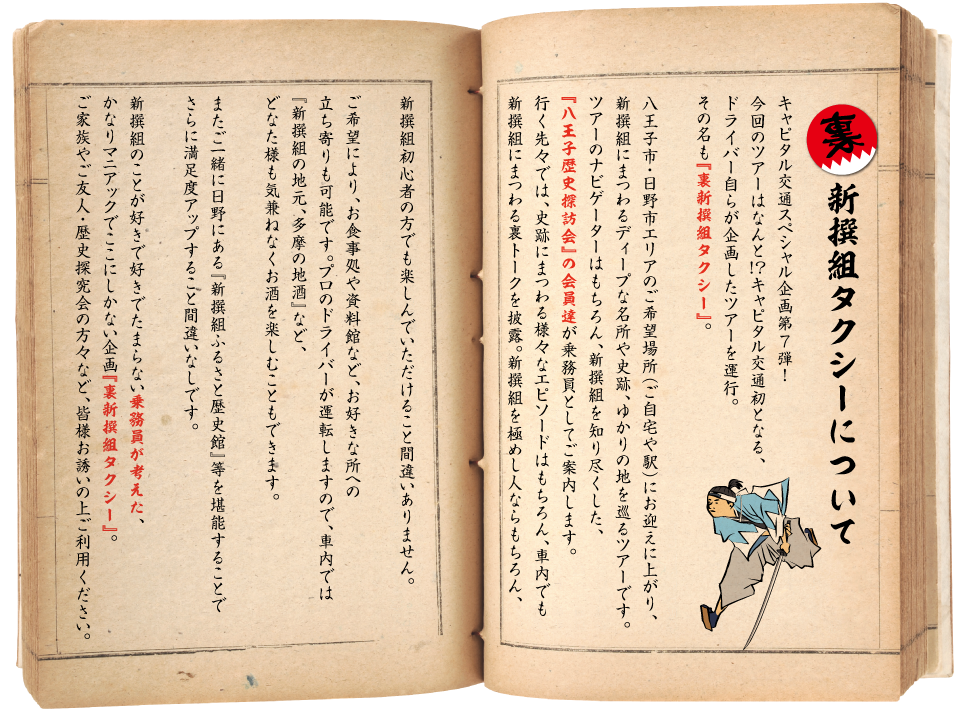 裏
新撰組タクシーについて
キャピタル交通スペシャル企画第7弾！
今回のツアーはなんと!?キャピタル交通初となる、
ドライバー自らが企画したツアーを運行。
その名も『裏新撰組タクシー』。
八王子市・日野市エリアのご希望場所（ご自宅や駅）にお迎えに上がり、
新撰組にまつわるディープな名所や史跡、ゆかりの地を巡るツアーです。
ツアーのナビゲーターはもちろん、新撰組を知り尽くした、
『八王子歴史探訪会』の会員達が乗務員としてご案内します。
行く先々では、史跡にまつわる様々なエピソードはもちろん、車内でも
新撰組にまつわる裏トークを披露。新撰組を極めし人ならもちろん、
新撰組初心者の方でも楽しんでいただけること間違いありません。
ご希望により、お食事処や資料館など、お好きな所への
立ち寄りも可能です。プロのドライバーが運転しますので、車内では
『新撰組の地元、多摩の地酒』など、
どなた様も気兼ねなくお酒を楽しむこともできます。
またご一緒に日野にある『新撰組ふるさと歴史館』等を堪能することで
さらに満足度アップすること間違いなしです。
新撰組のことが好きで好きでたまらない乗務員が考えた、
かなりマニアックでここにしかない企画『裏新撰組タクシー』。
ご家族やご友人・歴史探究会の方々など、皆様お誘いの上ご利用ください。